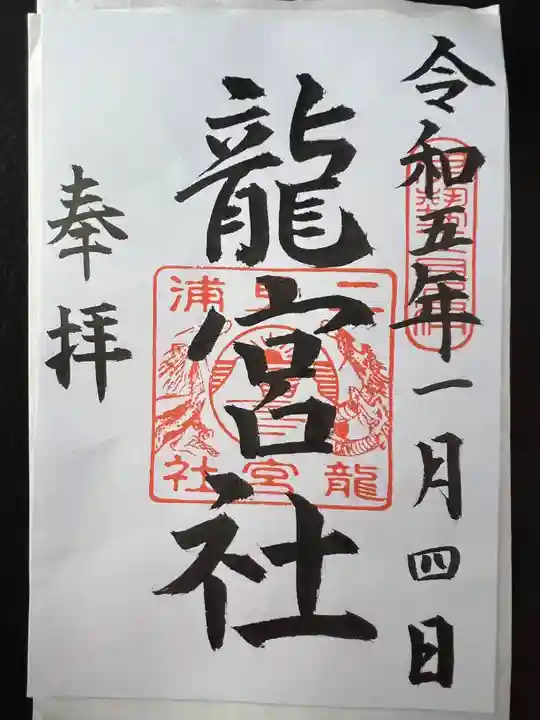 令和五年一月四日
龍宮社
二見浦
龍宮社
奉拝